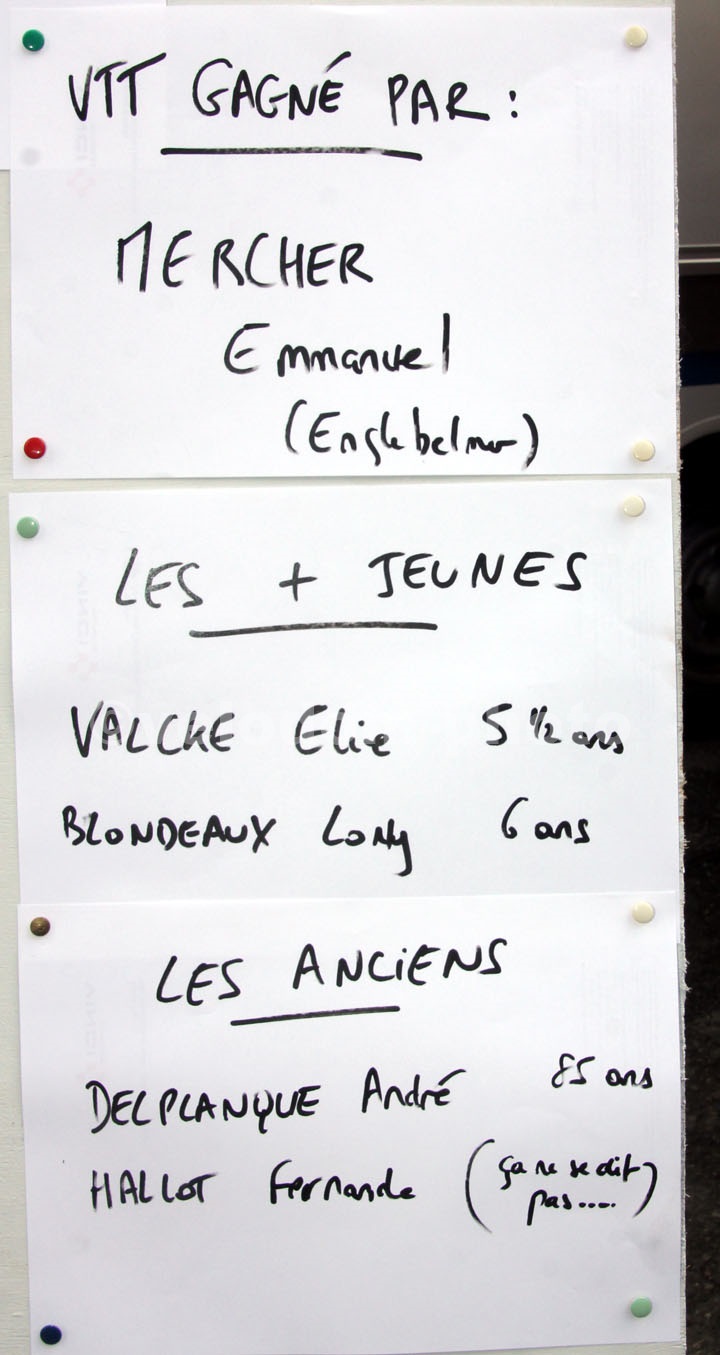 VTT GAGNÉ PAR :
MERCHER
Emmanuel
(Englebelmer)
LES + JEUNES
VALCKE Elie 5 1/2 ans
BLONDEAUX Lony 6 ans
LES ANCiENS
DELPLANQUE André 85 ans
HALLOT Fernande (ça ne se dit
pas....)